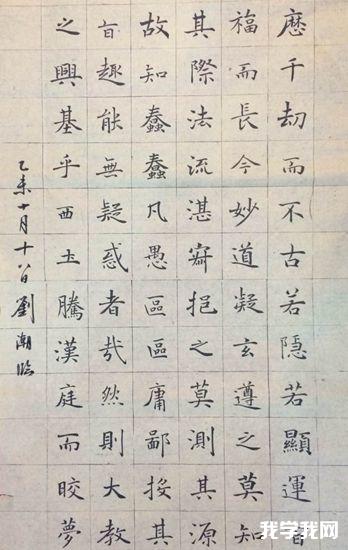 歷千劫而不古若隱若顯運百
福而長今妙道凝玄遵之莫知
其際法流湛寂挹之莫測其源
故知蠢蠢凡愚區區庸鄙投其
旨趣能無疑惑者哉然則大教
之興基乎西土騰漢庭而皎夢
乙未十月十八日劉潮臨
我学我网